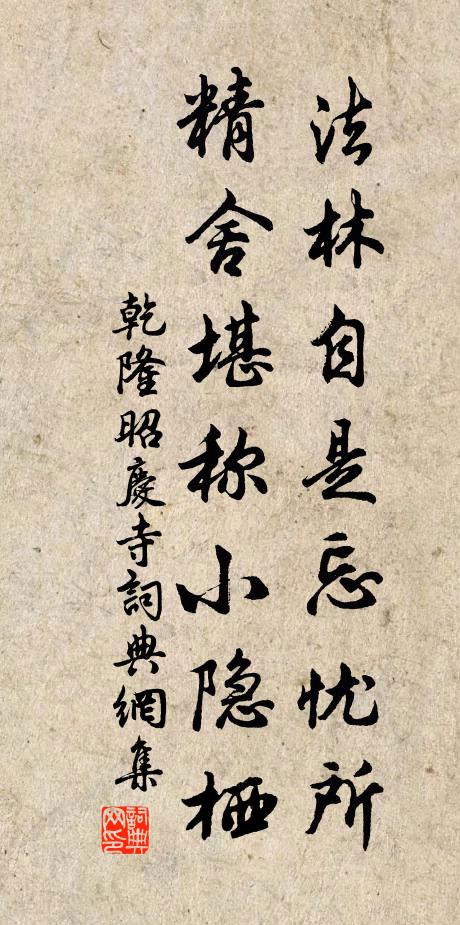 法林自是忘忧所
精舍堪称小隐栖
乾隆昭慶寺詞典網集
詞典
网印